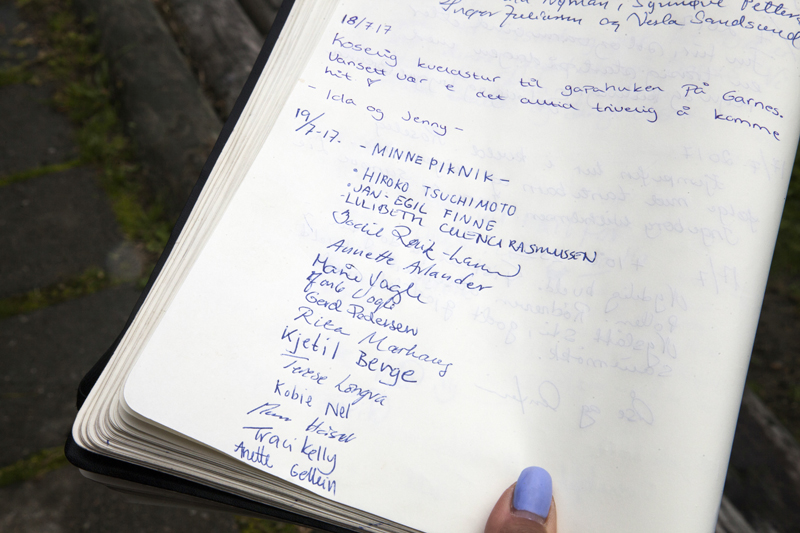 Nyman, Synnøve Petter
Inger Juliann og Vesla Sandsund
18/7 17
Koselig kveldstur til gapahuken på Garnes.
Uansett vær e det alltid trivelig å komme
hit
- Ida og Jenny -
19/7-17.
- MINNEPIKNIK -
• HIROKO TSUCHIMOTO
• JAN-EGIL FINNE
- LILIBETH CUENCA RASMUSSEN
Annette Arlander
Marie Vogli
Vogli
Gerd Pedersen
Rita Marhaug
Kjetil Berge
Terese Longva
Kobie Nel
Traci Kelly
Anette Gellein